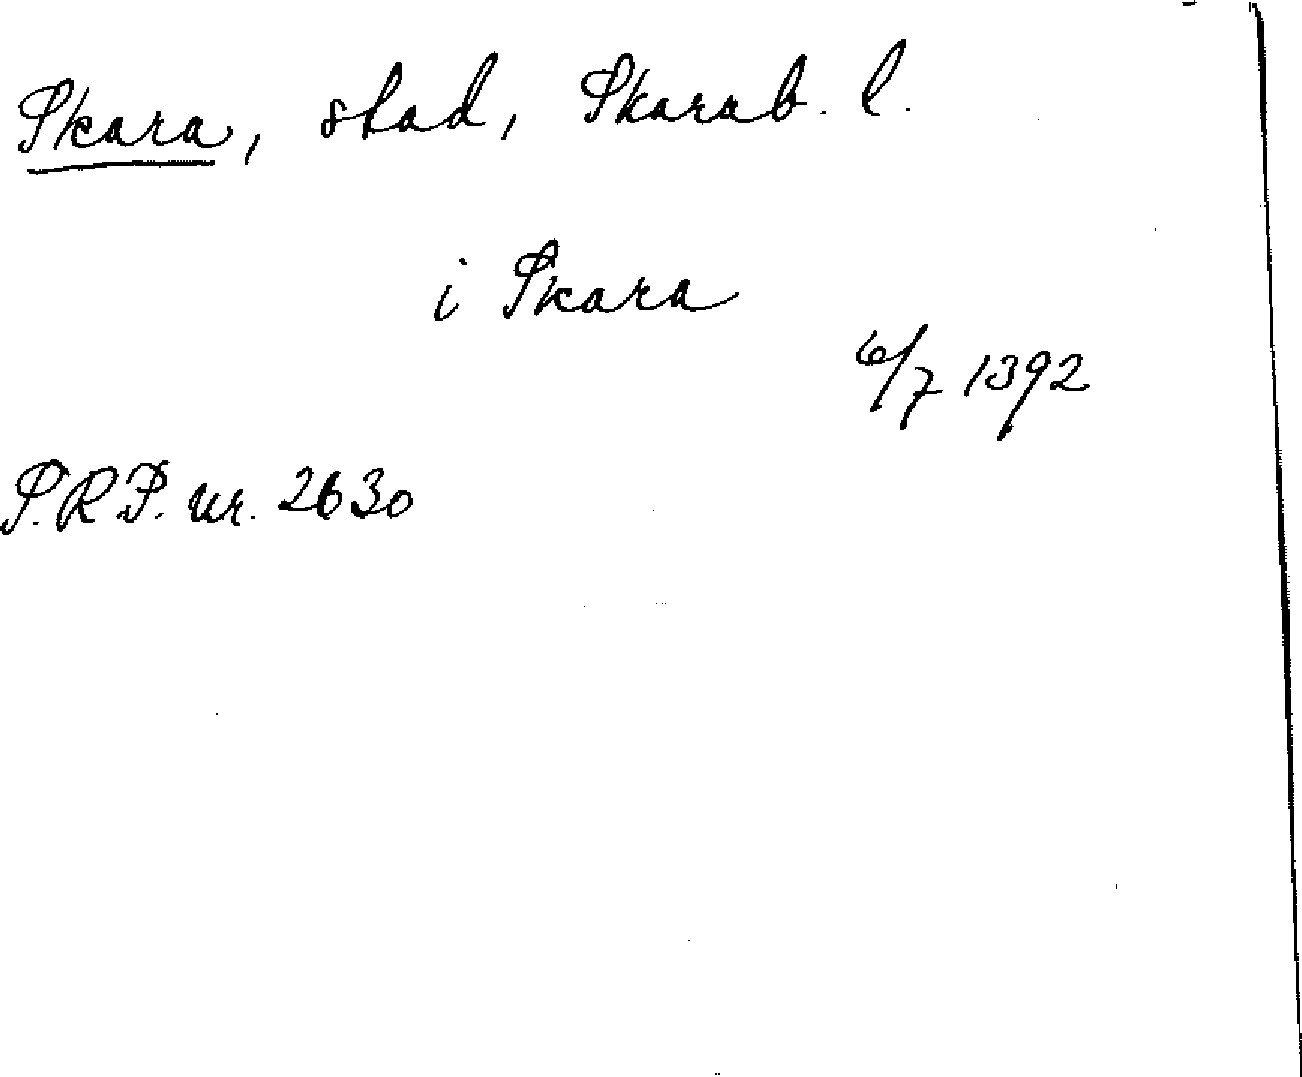 Skara, stad, Skarab. l.
i Skara
6/7 1392
S.R.P. nr. 2630